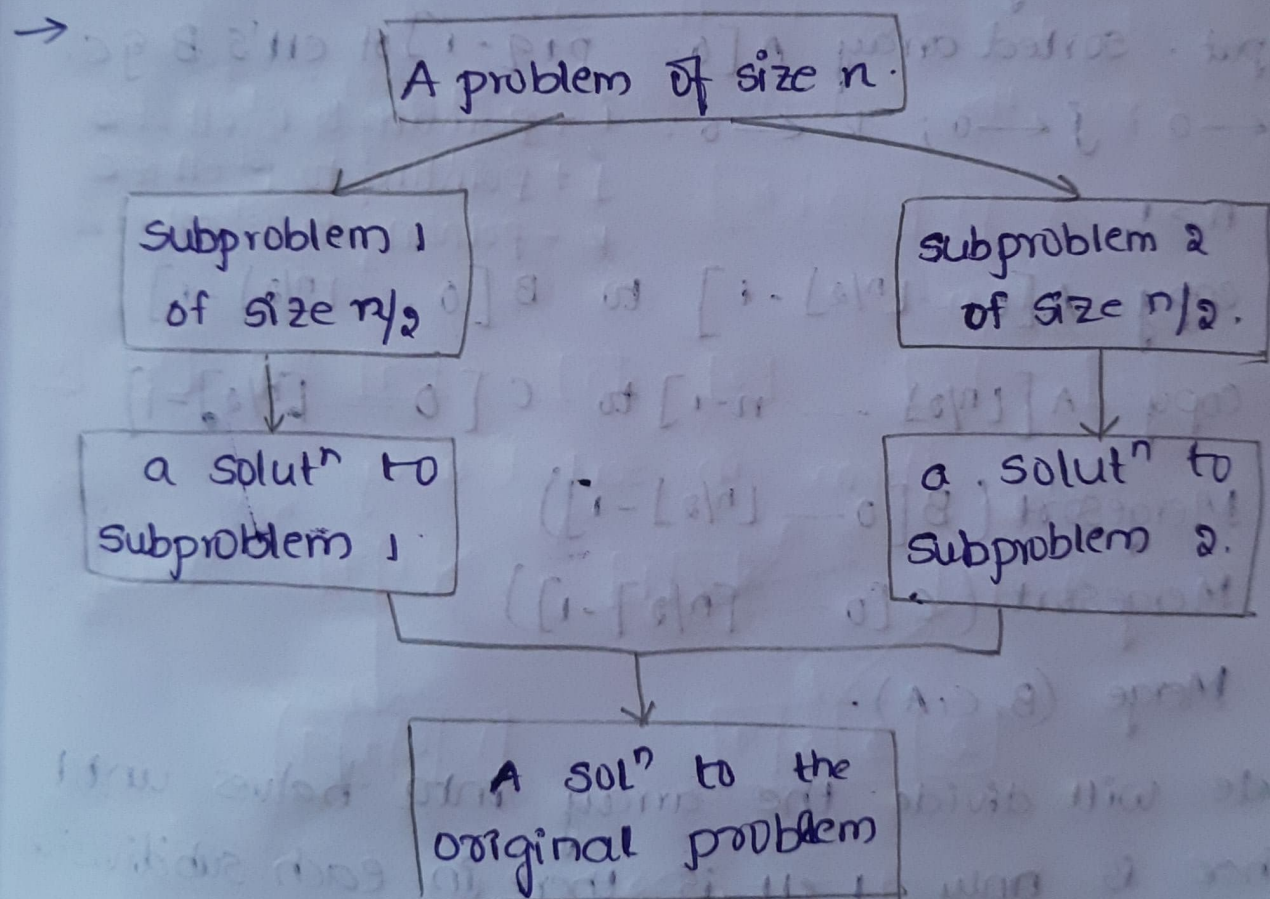 →
A problem of size n.
subproblem 1
of size n/2
subproblem 2
of size n/2.
a solutⁿ to
subproblem 1
a solutⁿ to
subproblem 2.
A solⁿ to the
original problem